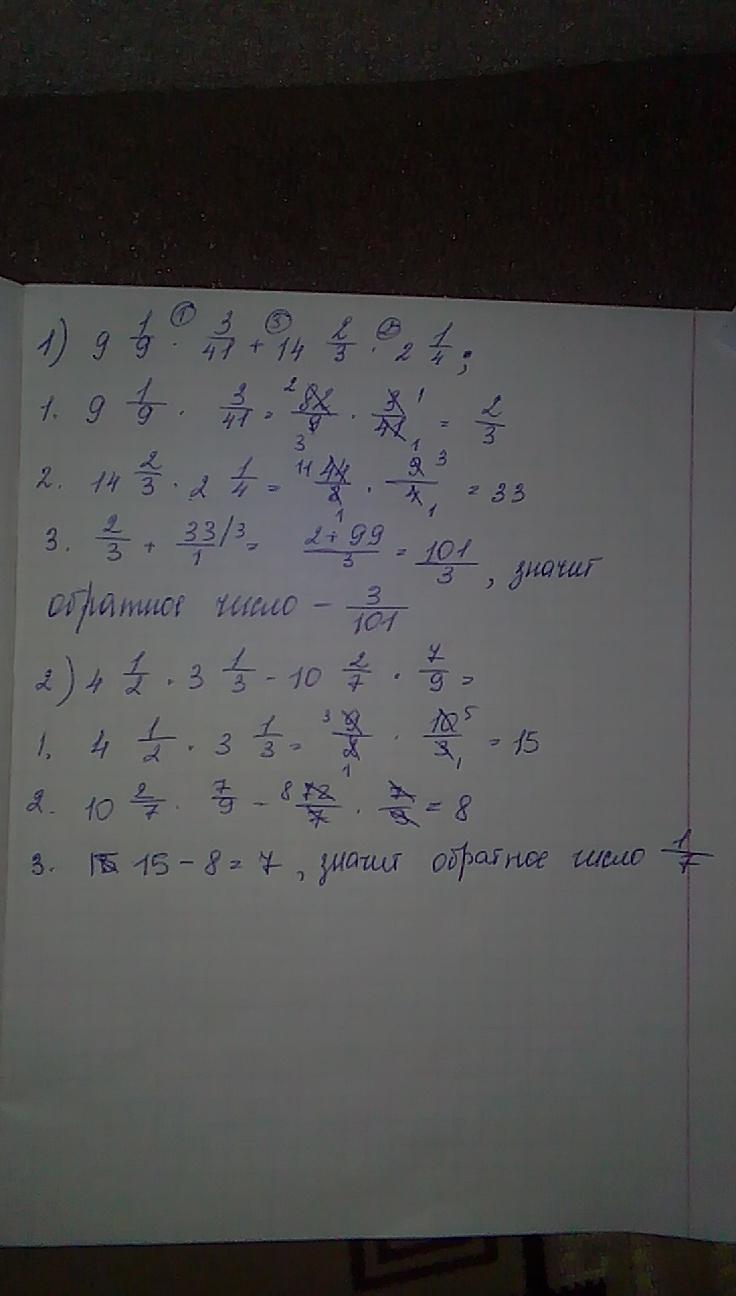 1) 9 1/9 · 3/41 + 14 2/3 · 2 1/4;
1. 9 1/9 · 3/41 = 82/9 · 3/41 = 2/3
2. 14 2/3 · 2 1/4 = 44/3 · 9/4 = 33
3. 2/3 + 33/1 /3 = 2+99/3 = 101/3, значит
обратное число – 3/101
2) 4 1/2 · 3 1/3 - 10 2/7 · 7/9 =
1. 4 1/2 · 3 1/3 = 9/2 · 10/3 = 15
2. 10 2/7 · 7/9 = 72/7 · 7/9 = 8
3. 15 - 8 = 7, значит обратное число 1/7